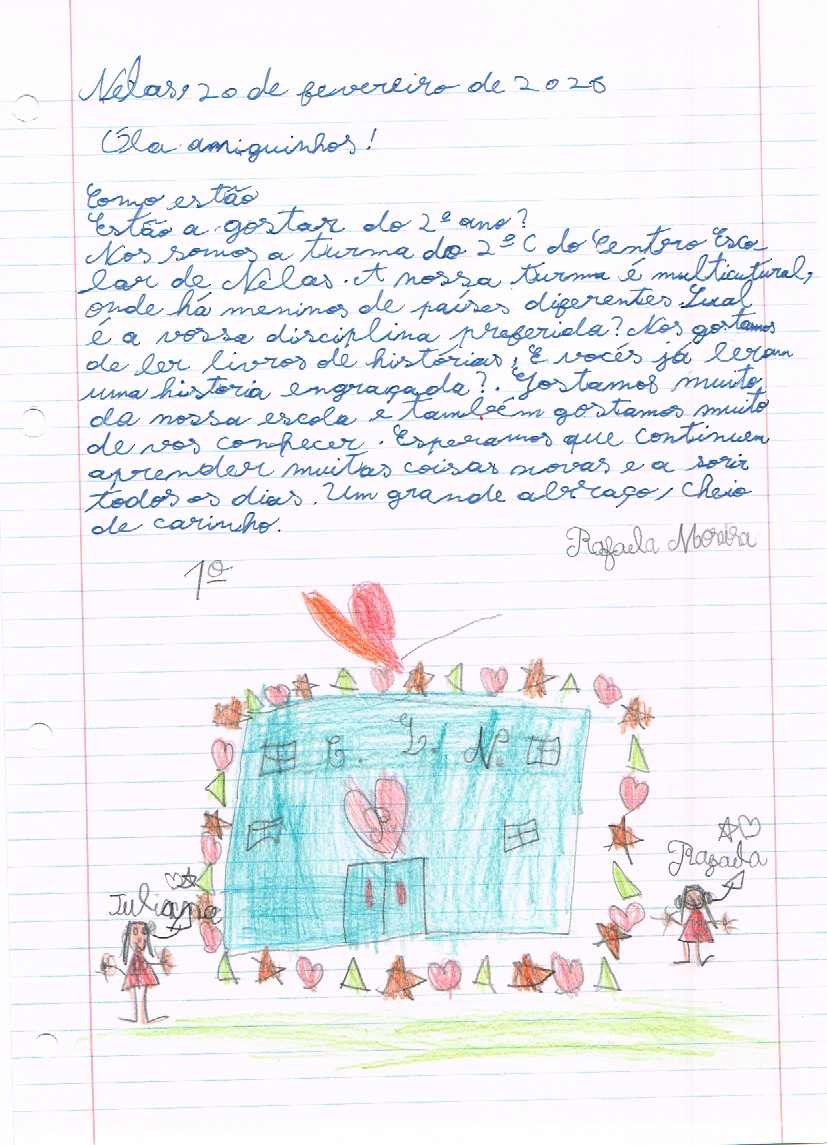 Nelas, 20 de fevereiro de 2026
Óla amiguinhos!
Como estão
Estão a gostar do 2º ano?
Nos somos a turma do 2º C do Centro Esco
lar de Nelas. A nossa turma é multicutural,
onde há meninos de países diferentes. Qual
é a vossa disciplina preferida? Nos gostamos
de ler livros de histórias, E vocês já leram
uma historia engraçada?. Gostamos muito
da nossa escola e também gostamos muito
de vos conhecer. Esperamos que continuem
aprender muitas coisas novas e a sorir
todos os dias. Um grande abraço, cheio
de carinho.
Rafaela Moreira
1º
C. E. N.
Juliana
Rafaela